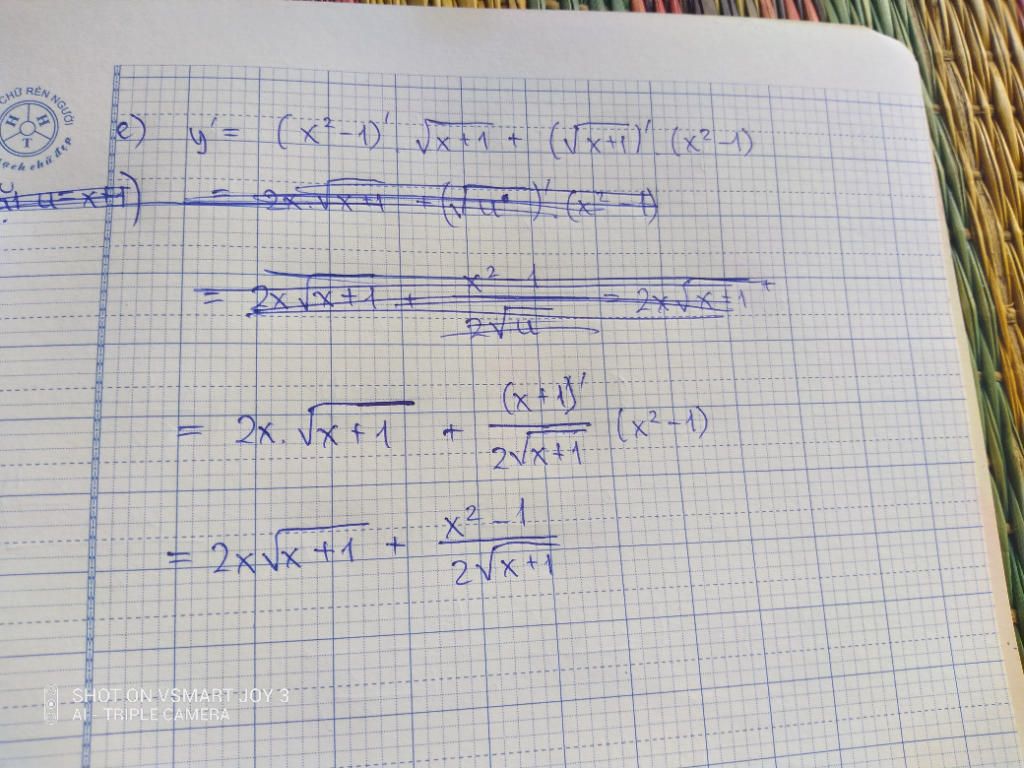 CHỮ RÈN NGƯỜI
H H T
e) y' = (x² - 1)' √(x+1) + (√(x+1))' . (x² - 1)
= 2x.√(x+1) + (√u)' . (x² - 1)
= 2x√(x+1) + (x² - 1)/(2√u) = 2x√(x+1) +
= 2x.√(x+1) + (x+1)'/(2√(x+1)) (x² - 1)
= 2x√(x+1) + (x² - 1)/(2√(x+1))
SHOT ON VSMART JOY 3
AI - TRIPLE CAMERA